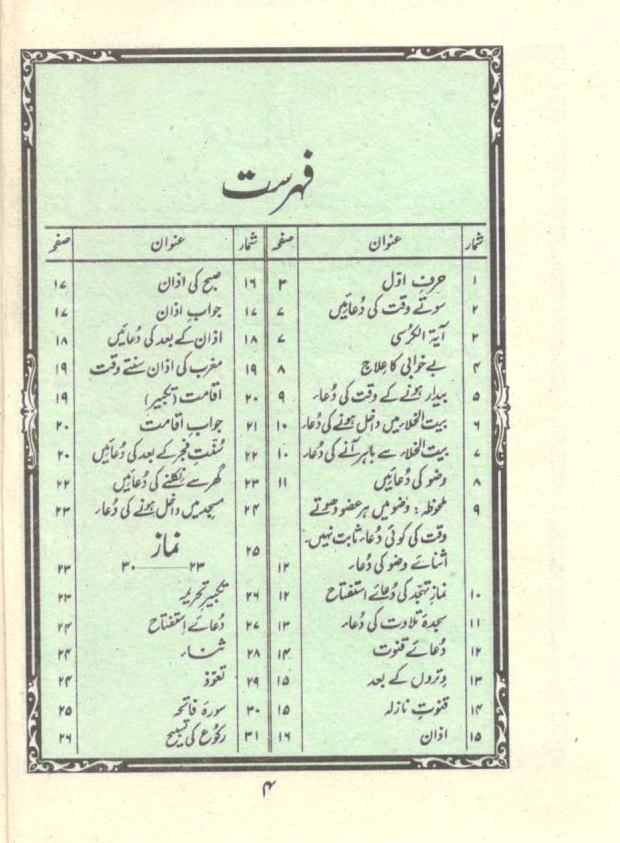 فہرست
شمار عنوان صفحہ
۱ حرفِ اوّل ۳
۲ سوتے وقت کی دُعائیں ۷
۳ آیۃ الکرسی ۷
۴ بے خوابی کا علاج ۸
۵ بیدار ہونے کے وقت کی دُعاء ۹
۶ بیت الخلاء میں داخل ہونے کی دُعاء ۱۰
۷ بیت الخلاء سے باہر آنے کی دُعاء ۱۰
۸ وضو کی دُعائیں ۱۱
۹ ملحوظہ: وضو میں ہر عضو دھوتے
وقت کی کوئی دُعاء ثابت نہیں۔
اثنائے وضو کی دُعاء ۱۲
۱۰ نمازِ تہجّد کی دُعائے استفتاح ۱۲
۱۱ سجدۂ تلاوت کی دُعاء ۱۳
۱۲ دُعائے قنوت ۱۴
۱۳ وِتروں کے بعد ۱۵
۱۴ قنوتِ نازلہ ۱۵
۱۵ اذان ۱۶
شمار عنوان صفحہ
۱۶ صبح کی اذان ۱۷
۱۷ جوابِ اذان ۱۷
۱۸ اذان کے بعد کی دُعائیں ۱۸
۱۹ مغرب کی اذان سنتے وقت ۱۹
۲۰ اقامت (تکبیر) ۱۹
۲۱ جوابِ اقامت ۲۰
۲۲ سُنّتِ فجر کے بعد کی دُعائیں ۲۰
۲۳ گھر سے نکلنے کی دُعائیں ۲۲
۲۴ مسجد میں داخل ہونے کی دُعاء ۲۳
۲۵ نماز
۲۳ — ۳۰ ۲۳
۲۶ تکبیرِ تحریمہ ۲۳
۲۷ دُعائے اِستفتاح ۲۴
۲۸ ثناء ۲۴
۲۹ تعوّذ ۲۴
۳۰ سورۂ فاتحہ ۲۵
۳۱ رکوع کی تسبیح ۲۶
۴